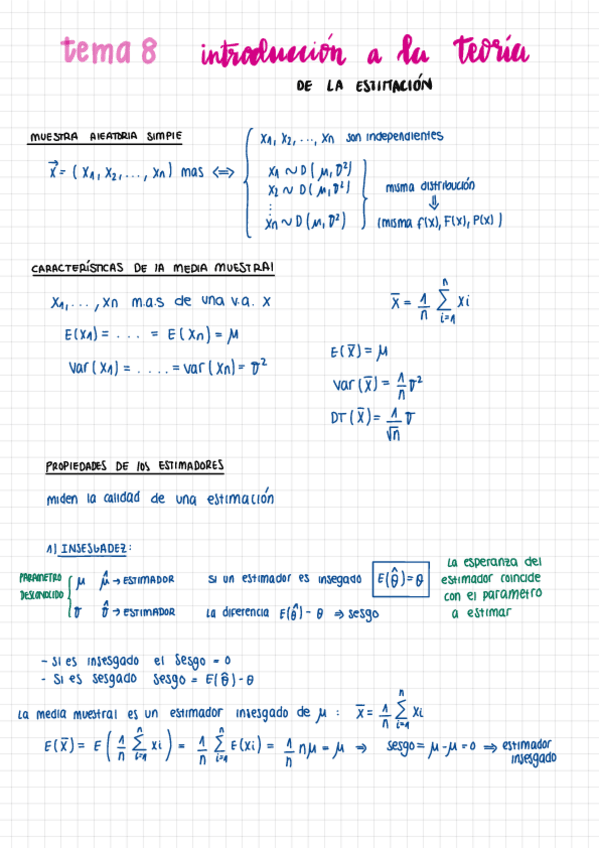 tema 8 introducción a la teoría
DE LA ESTIMACIÓN
MUESTRA ALEATORIA SIMPLE
X⃗ = ( X1, X2, ..., Xn ) mas ⟺
X1, X2, ..., Xn son independientes
X1 ~ D ( μ, σ²)
X2 ~ D ( μ, σ²)
⋮
Xn ~ D ( μ, σ²)
misma distribución
⇓
(misma f(x), F(x), P(x) )
CARACTERÍSTICAS DE LA MEDIA MUESTRAL
X1, ..., Xn m.a.s de una v.a. X
E(X1) = . . . = E(Xn) = μ
Var(X1) = . . . . = var(Xn) = σ²
X̄ = 1/n ∑_{i=1}^{n} Xi
E(X̄) = μ
Var(X̄) = 1/n σ²
DT(X̄) = 1/√n σ
PROPIEDADES DE LOS ESTIMADORES
miden la calidad de una estimación
1) INSESGADEZ:
PARÁMETRO
DESCONOCIDO
μ μ̂ → ESTIMADOR
σ σ̂ → ESTIMADOR
si un estimador es insegado E(θ̂) = θ
La diferencia E(θ̂) - θ ⇒ sesgo
La esperanza del
estimador coincide
con el parámetro
a estimar
- si es insesgado el sesgo = 0
- Si es sesgado sesgo = E(θ̂) - θ
La media muestral es un estimador insesgado de μ : X̄ = 1/n ∑_{i=1}^{n} Xi
E(X̄) = E ( 1/n ∑_{i=1}^{n} Xi ) = 1/n ∑_{i=1}^{n} E(Xi) = 1/n nμ = μ ⇒ sesgo = μ - μ = 0 ⇒ estimador
insesgado